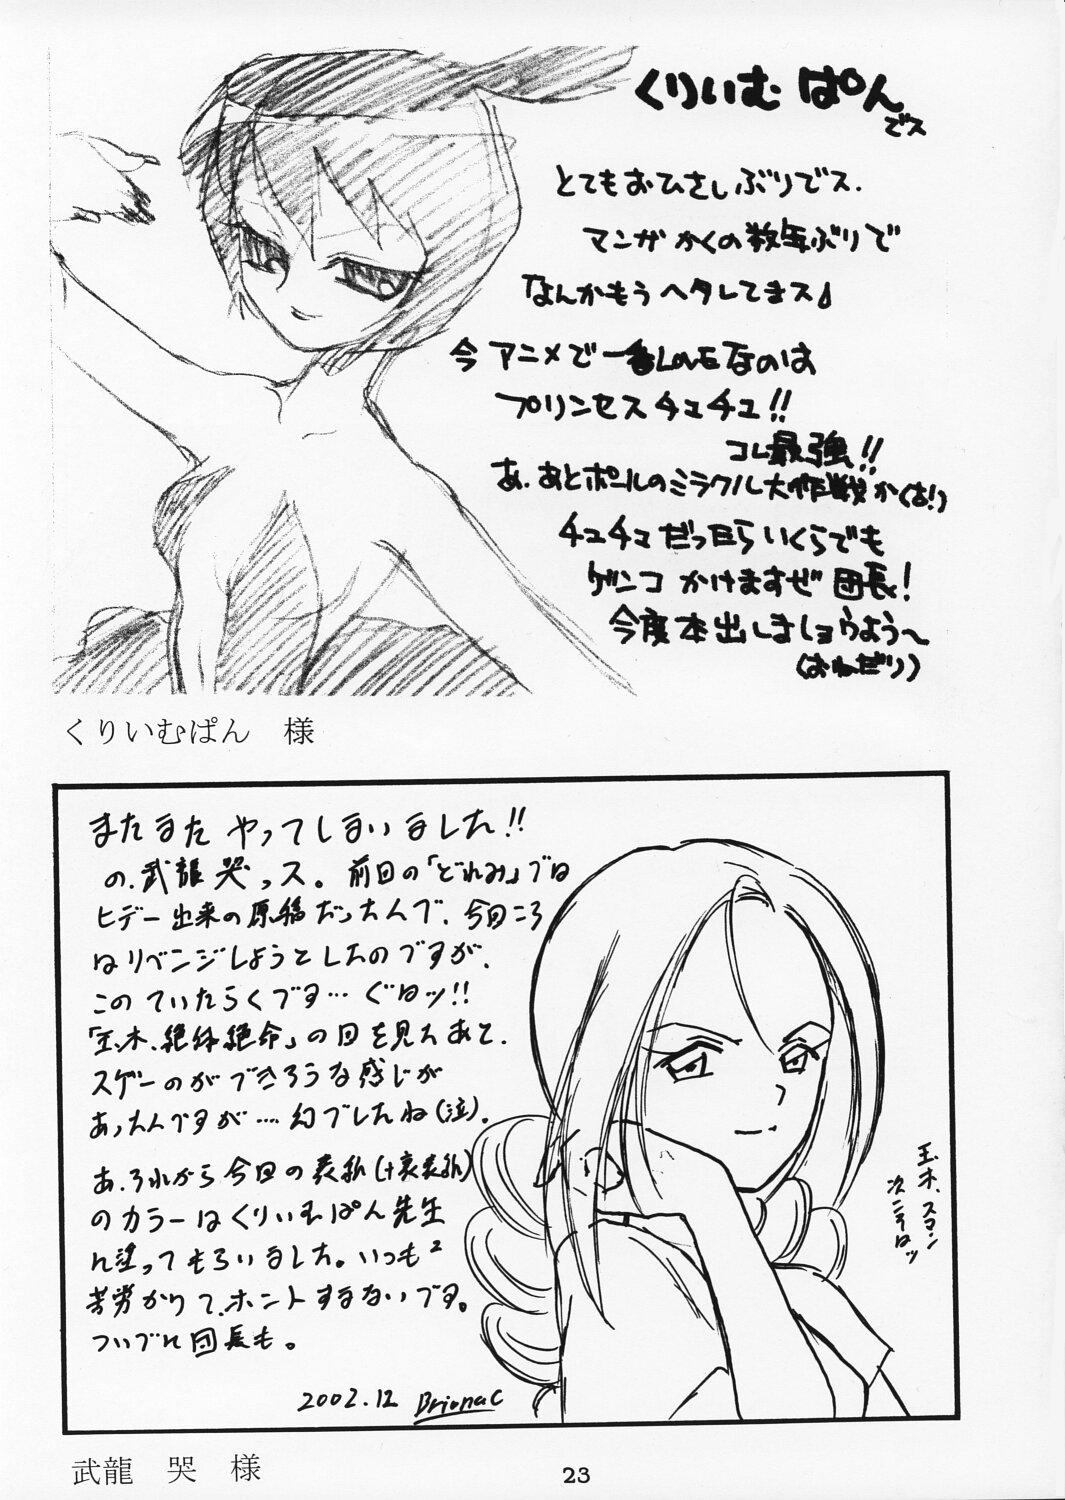 くりいむ ぱん
でス
とてもおひさしぶりでス.
マンガ かくの数年ぶりで
なんかもう ヘタレてまス♪
今 アニメで 一番LOVEなのは
プリンセス チュチュ!!
コレ最強!!
あ、あとポールのミラクル大作戦か(古!)
チュチュだったらいくらでも
ゲンコ かけますぜ 団長!
今度本出しましョウよう〜
(おねだり)
くりいむぱん 様
またまた やってしまいました!!
の、武龍 哭っス。前回の「どれみ」では
ヒデー出来の原稿だったんで、今回こそ
はリベンジしようとしたのですが、
このていたらくです… ぐはッ!!
「玉木、絶体絶命」の回を見たあと、
スゲーのができそうな感じが
あったんですが…. 幻でしたね(泣)。
あ、それから今回の表紙(+裏表紙)
のカラーはくりいむぱん先生
に塗ってもらいました。いつも²
苦労かけて、ホントすまないです。
ついでに団長も。
2002.12 Brionac
玉木、スマン
次こそはッ
武龍 哭 様
23